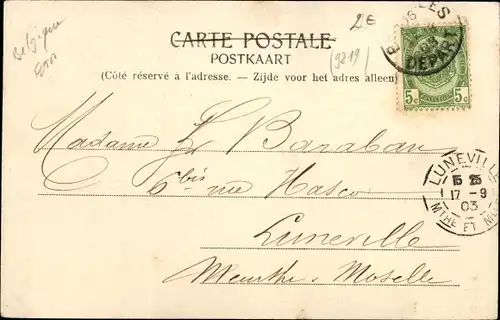 Belgique
2€
CARTE POSTALE
POSTKAART
(9219)
(Côté réservé à l'adresse. — Zijde voor het adres alleen)
DEPART
5c 5c
Madame L Baraban
6 bis rue Hasco
Lunéville
Meurthe & Moselle
LUNEVILLE
15 25
17-9
03
MTHE ET M